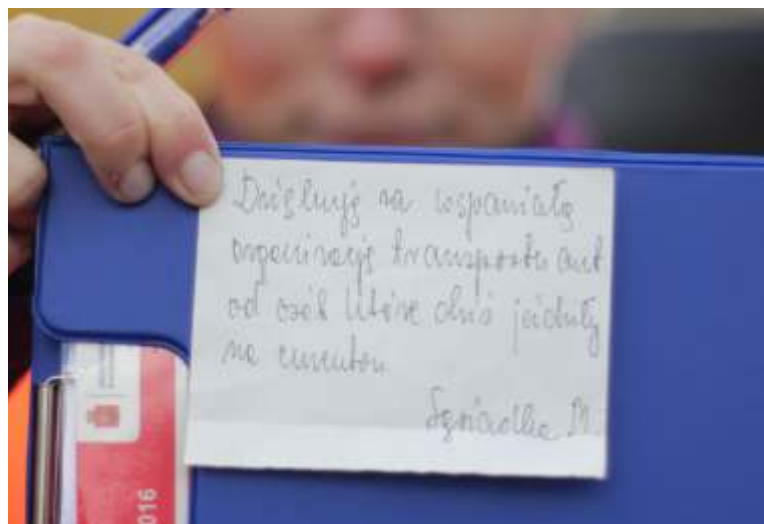 Dziękuję za wspaniałą
organizację transportu aut
od osób które dziś jeździły
na cmentarz
Sąsiadka M.
016